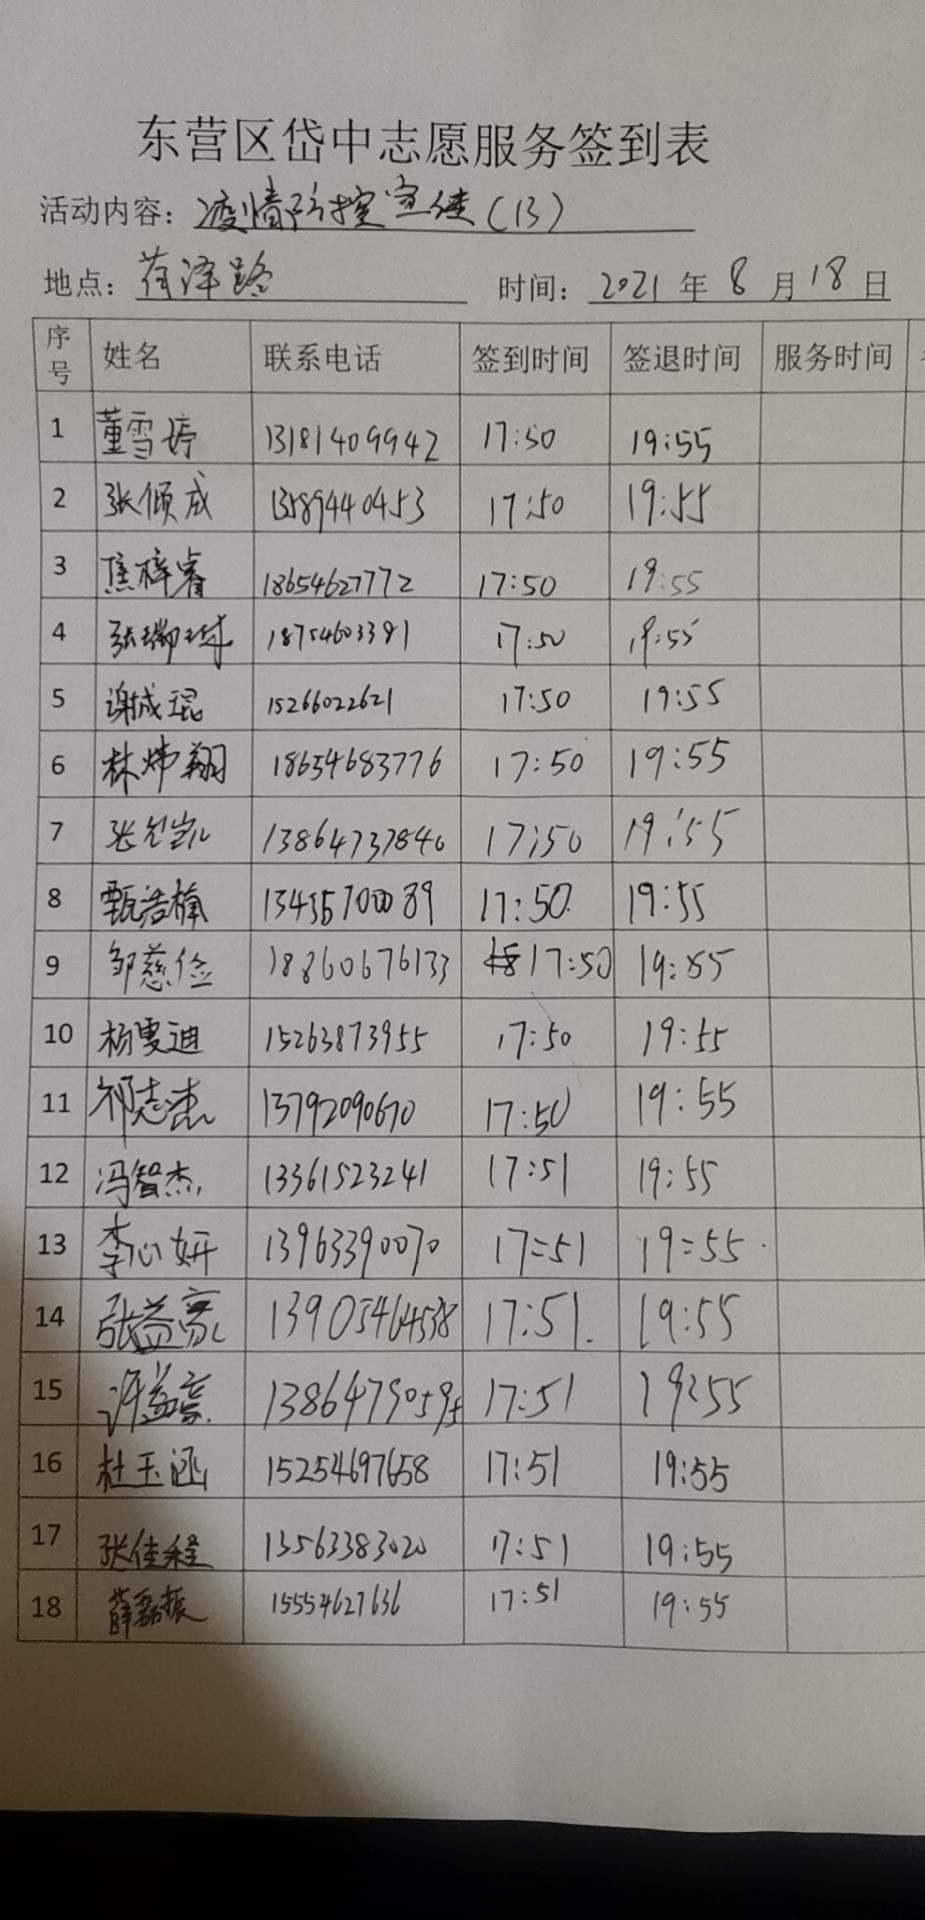 东营区岱中志愿服务签到表
活动内容：疫情防控宣传(13)
地点：菏泽路 时间：2021年8月18日
序号 姓名 联系电话 签到时间 签退时间 服务时间
1 董雪婷 13181409942 17:50 19:55
2 张倾成 13589440453 17:50 19:55
3 焦梓睿 18654627772 17:50 19:55
4 张瑞球 18754603391 17:50 19:55
5 谢成琨 15266022621 17:50 19:55
6 林炜翔 18654683776 17:50 19:55
7 13864737840 17:50 19:55
8 甄浩楠 17:50 19:55
9 邹慈俭 18860676133 17:50 19:55
10 杨雯迪 15263873955 17:50 19:55
11 祁志杰 13792090670 17:50 19:55
12 冯智杰 13361523241 17:51 19:55
13 李心妍 13963390070 17=51 19=55
14 张益豪 13905464538 17:51 19:55
15 许益豪 13864790595 17:51 19:55
16 杜玉涵 15254697658 17:51 19:55
17 张佳程 13563383020 17:51 19:55
18 薛磊振 15554627636 17:51 19:55